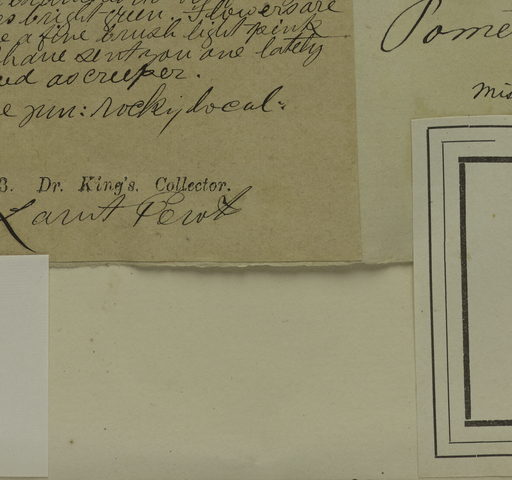 s bright green. Flowers are
e a fine brush light pink
have sent you one lately
ed as creeper.
e jun: rocky local:
3. Dr. King's. Collector.
Pome
Mis